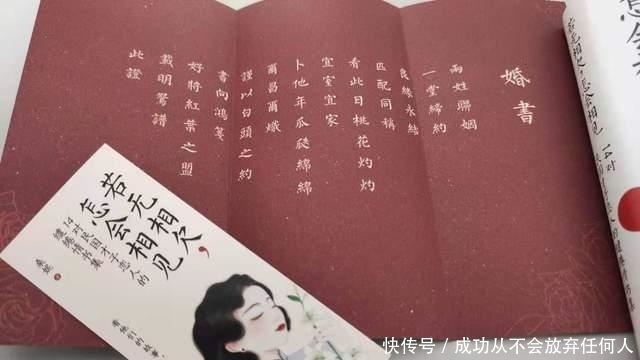 婚書
兩姓聯姻
一堂締約
良緣永結
匹配同稱
看此日桃花灼灼
宜室宜家
卜他年瓜瓞綿綿
爾昌爾熾
謹以白頭之約
書向鴻箋
好將紅葉之盟
載明鴛譜
此證
若无相欠，
怎会相见
14对民国才子恋人的
缱绻情书集
桑妮
看他们的故事，
若无相欠，怎会相见 14对
快传号／成功从不会放弃任何人